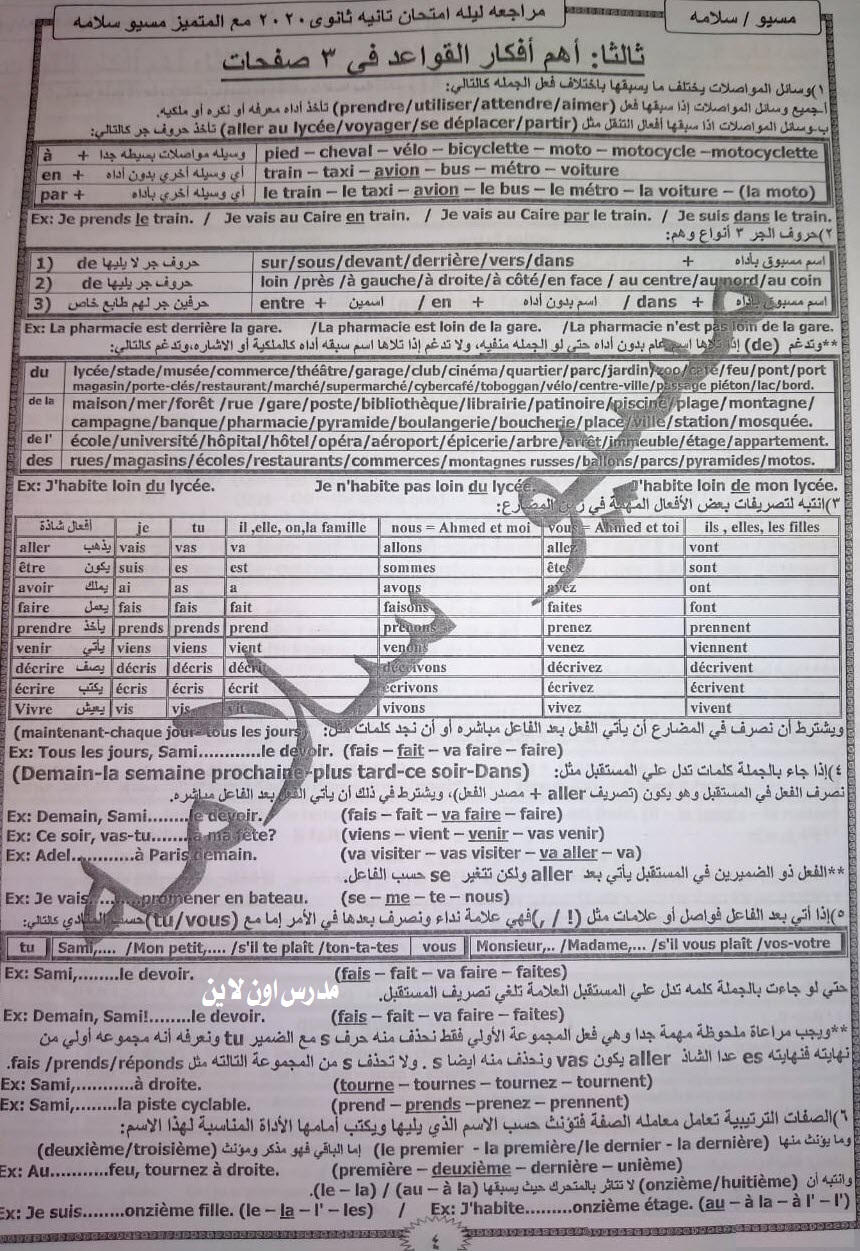 مراجعه ليله امتحان تانيه ثانوى ٢٠٢٠ مع المتميز مسيو سلامه
مسيو / سلامه
ثالثا: أهم أفكار القواعد فى ٣ صفحات
١) وسائل المواصلات يختلف ما يسبقها باختلاف فعل الجمله كالتالي:
أ-جميع وسائل المواصلات إذا سبقها فعل (prendre/utiliser/attendre/aimer) تأخذ أداه معرفه أو نكره أو ملكيه.
ب-وسائل المواصلات اذا سبقها أفعال التنقل مثل (aller au lycée/voyager/se déplacer/partir) تأخذ حروف جر كالتالي:
à + وسيله مواصلات بسيطه جدا pied – cheval – vélo – bicyclette – moto – motocycle –motocyclette
en + أي وسيله أخري بدون أداه train – taxi – avion – bus – métro – voiture
par + أي وسيله أخري بأداه le train – le taxi – avion – le bus – le métro – la voiture – (la moto)
Ex: Je prends le train. / Je vais au Caire en train. / Je vais au Caire par le train. / Je suis dans le train.
٢) حروف الجر ٣ أنواع وهم:
1) حروف جر لا يليها de sur/sous/devant/derrière/vers/dans + اسم مسبوق بأداه
2) حروف جر يليها de loin /près /à gauche/à droite/à côté/en face / au centre/au nord/au coin
3) حرفين جر لهم طابع خاص entre + اسمين / en + اسم بدون أداه / dans + اسم مسبوق بأداه
Ex: La pharmacie est derrière la gare. /La pharmacie est loin de la gare. /La pharmacie n'est pas loin de la gare.
**وتدغم (de) إذا تلاها اسم عام بدون أداه حتي لو الجمله منفيه، ولا تدغم إذا تلاها اسم سبقه أداه كالملكية أو الاشاره،وتدغم كالتالي:
du lycée/stade/musée/commerce/théâtre/garage/club/cinéma/quartier/parc/jardin/zoo/café/feu/pont/port
magasin/porte-clés/restaurant/marché/supermarché/cybercafé/toboggan/vélo/centre-ville/passage piéton/lac/bord.
de la maison/mer/forêt /rue /gare/poste/bibliothèque/librairie/patinoire/piscine/plage/montagne/
campagne/banque/pharmacie/pyramide/boulangerie/boucherie/place/ville/station/mosquée.
de l' école/université/hôpital/hôtel/opéra/aéroport/épicerie/arbre/arrêt/immeuble/étage/appartement.
des rues/magasins/écoles/restaurants/commerces/montagnes russes/ballons/parcs/pyramides/motos.
Ex: J'habite loin du lycée. Je n'habite pas loin du lycée. J'habite loin de mon lycée.
٣) انتبه لتصريفات بعض الأفعال المهمة في زمن المضارع:
أفعال شاذة je tu il ,elle, on,la famille nous = Ahmed et moi vous = Ahmed et toi ils , elles, les filles
aller يذهب vais vas va allons allez vont
être يكون suis es est sommes êtes sont
avoir يملك ai as a avons avez ont
faire يعمل fais fais fait faisons faites font
prendre يأخذ prends prends prend prenons prenez prennent
venir يأتي viens viens vient venons venez viennent
décrire يصف décris décris décrit décrivons décrivez décrivent
écrire يكتب écris écris écrit écrivons écrivez écrivent
Vivre يعيش vis vis vit vivons vivez vivent
ويشترط أن نصرف في المضارع أن يأتي الفعل بعد الفاعل مباشره أو أن نجد كلمات مثل: (maintenant-chaque jour- tous les jours)
Ex: Tous les jours, Sami............le devoir. (fais – fait – va faire – faire)
٤) إذا جاء بالجملة كلمات تدل علي المستقبل مثل: (Demain-la semaine prochaine-plus tard-ce soir-Dans)
نصرف الفعل في المستقبل وهو يكون (تصريف aller + مصدر الفعل)، ويشترط في ذلك أن يأتي الفعل بعد الفاعل مباشره.
Ex: Demain, Sami........le devoir. (fais – fait – va faire – faire)
Ex: Ce soir, vas-tu........à ma fête? (viens – vient – venir – vas venir)
Ex: Adel............à Paris demain. (va visiter – vas visiter – va aller – va)
**الفعل ذو الضميرين في المستقبل يأتي بعد aller ولكن تتغير se حسب الفاعل.
Ex: Je vais............promener en bateau. (se – me – te – nous)
٥) إذا أتي بعد الفاعل فواصل أو علامات مثل (! / ,) فهي علامة نداء ونصرف بعدها في الأمر إما مع (tu/vous) حسب المنادي كالتالي:
tu Sami,.... /Mon petit,.... /s'il te plaît /ton-ta-tes vous Monsieur,.. /Madame,... /s'il vous plaît /vos-votre
Ex: Sami,........le devoir. (fais – fait – va faire – faites)
حتي لو جاءت بالجملة كلمه تدل علي المستقبل العلامة تلغي تصريف المستقبل.
مدرس اون لاين
Ex: Demain, Sami!........le devoir. (fais – fait – va faire – faites)
**ويجب مراعاة ملحوظة مهمة جدا وهي فعل المجموعة الأولي فقط نحذف منه حرف s مع الضمير tu ونعرفه أنه مجموعه أولي من
نهايته فنهايته es عدا الشاذ aller يكون vas ونحذف منه ايضا s . ولا تحذف s من المجموعة التالته مثل fais /prends/réponds.
Ex: Sami,...........à droite. (tourne – tournes – tournez – tournent)
Ex: Sami,........la piste cyclable. (prend – prends –prenez – prennent)
٦) الصفات الترتيبية تعامل معامله الصفة فتؤنث حسب الاسم الذي يليها ويكتب أمامها الأداة المناسبة لهذا الاسم:
وما يؤنث منها (le premier - la première/le dernier - la dernière) إما الباقي فهو مذكر ومؤنث (deuxième/troisième)
Ex: Au...........feu, tournez à droite. (première – deuxième – dernière – unième)
وانتبه أن (onzième/huitième) لا تتاثر بالمتحرك حيث يسبقها (le – la) / (au – à la).
Ex: Je suis........onzième fille. (le – la – l' – les) / Ex: J'habite.........onzième étage. (au – à la – à l' – l')
٤
مسيو سلامه